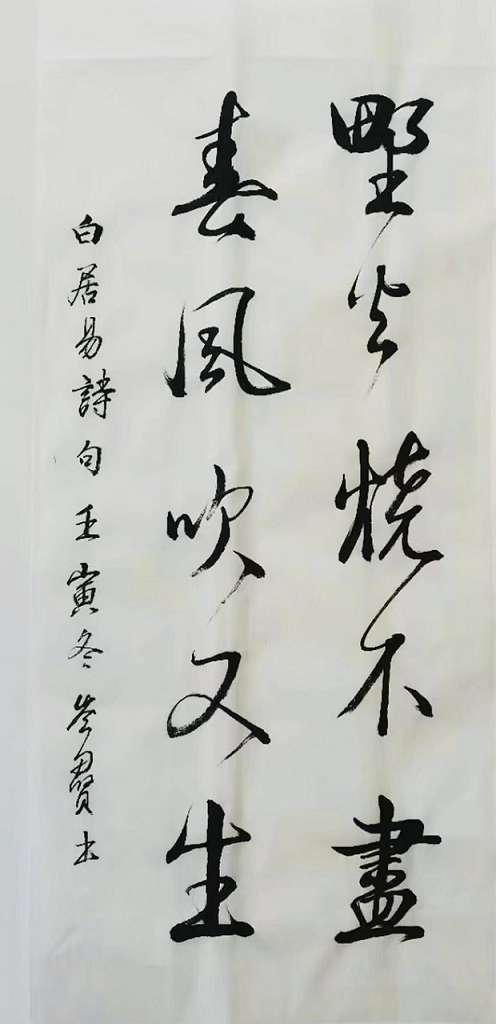 野火燒不盡
春風吹又生
白居易詩句壬寅冬岑賢書